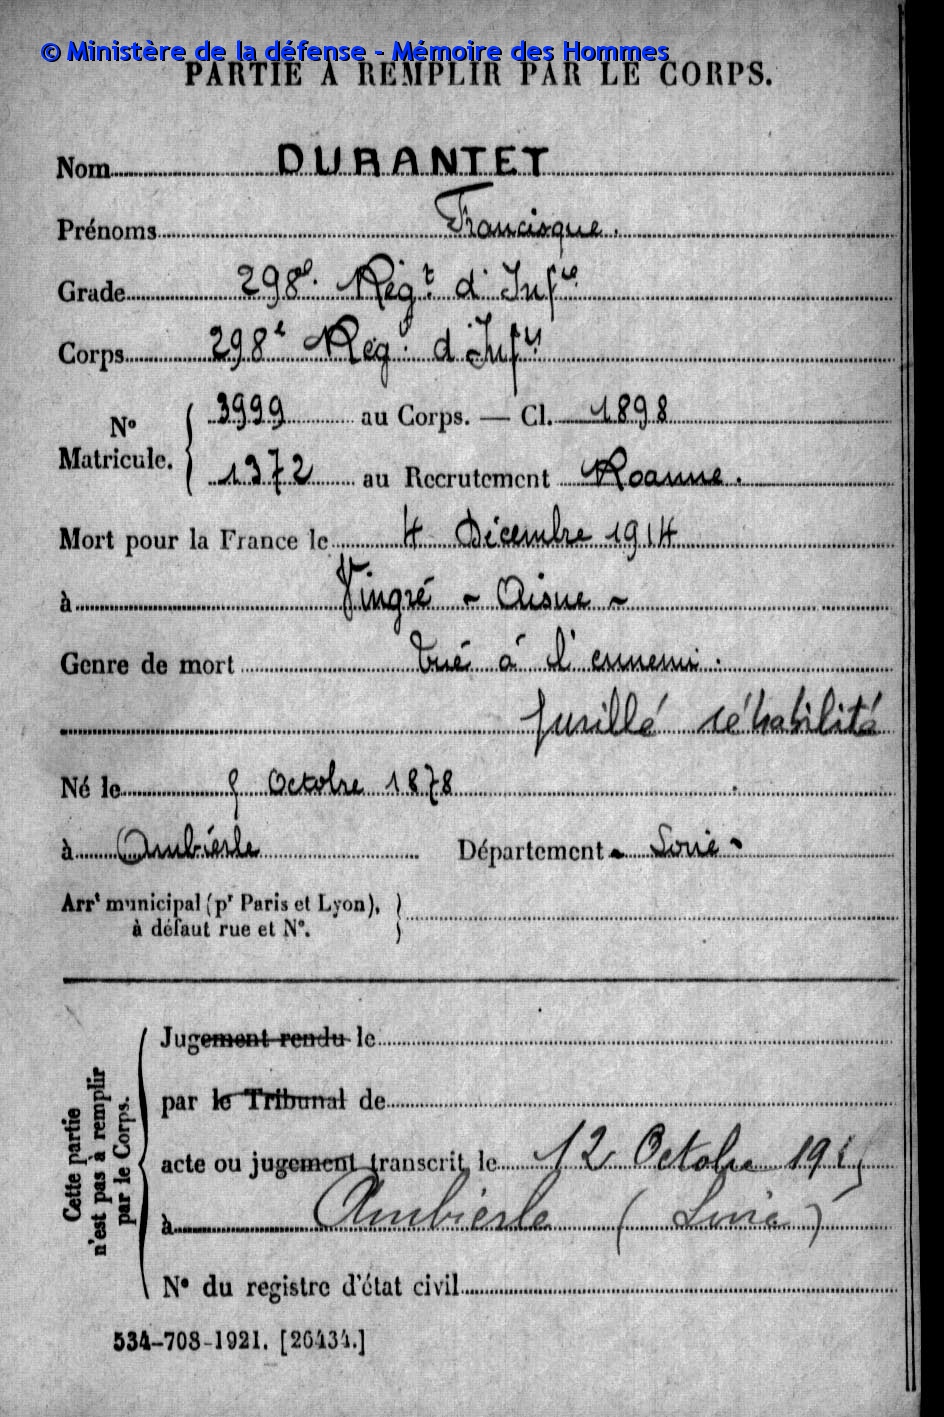 © Ministère de la défense - Mémoire des Hommes
PARTIE À REMPLIR PAR LE CORPS.
Nom DURANTET
Prénoms Francisque.
Grade 298e. Régt. d'Infie
Corps 298e Régt. d'Infie
No Matricule. { 3999 au Corps. — Cl. 1898
1372 au Recrutement Roanne.
Mort pour la France le 4 Décembre 1914
à Vingré - Aisne -
Genre de mort tué à l'ennemi.
fusillé réhabilité
Né le 5 Octobre 1878
à Ambierle Département Loire
Arrt municipal (pr Paris et Lyon),
à défaut rue et No.
Cette partie
n'est pas à remplir
par le Corps.
Jugement rendu le
par le Tribunal de
acte ou jugement transcrit le 12 Octobre
à Ambierle (Loire)
No du registre d'état civil
534-708-1921. [26434.]